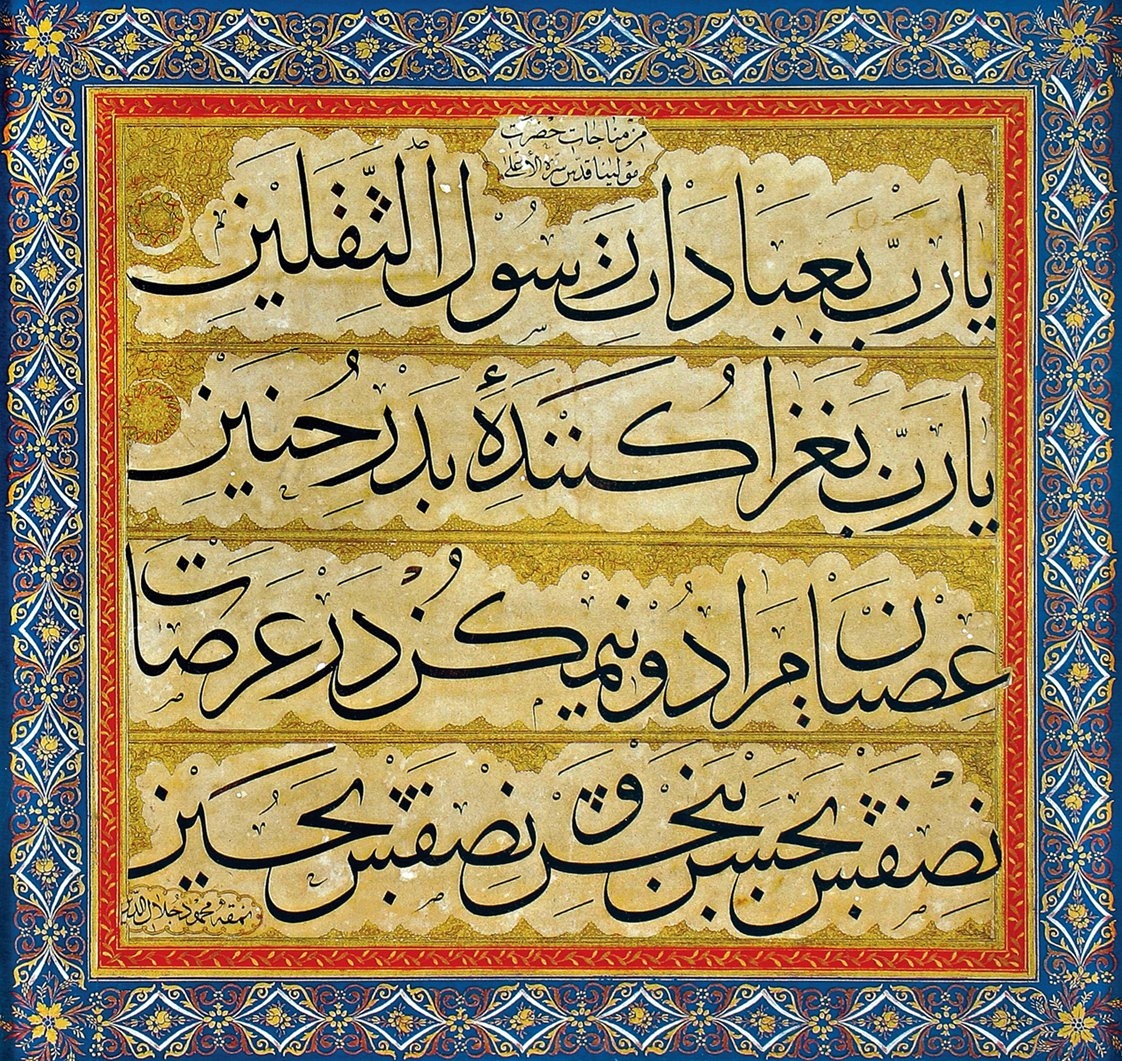 من مناجات حضرت
مولينا قدس سره الأعلى
يَا رَبّ بَعِبَادَات رَسُول الثَّقَلَيْن
يَا رَبّ بَغَزَا كُنَنْدَهٔ بَدْر حُنَيْن
عِصْيَان مَرَا دُو نِيم كُنْ دَرْ عَرَصَات
نِصْفَش بَحَسَنْ بَبَخْش و نِصْفَش بَحُسَيْن
نمقه محمود جلال الدين